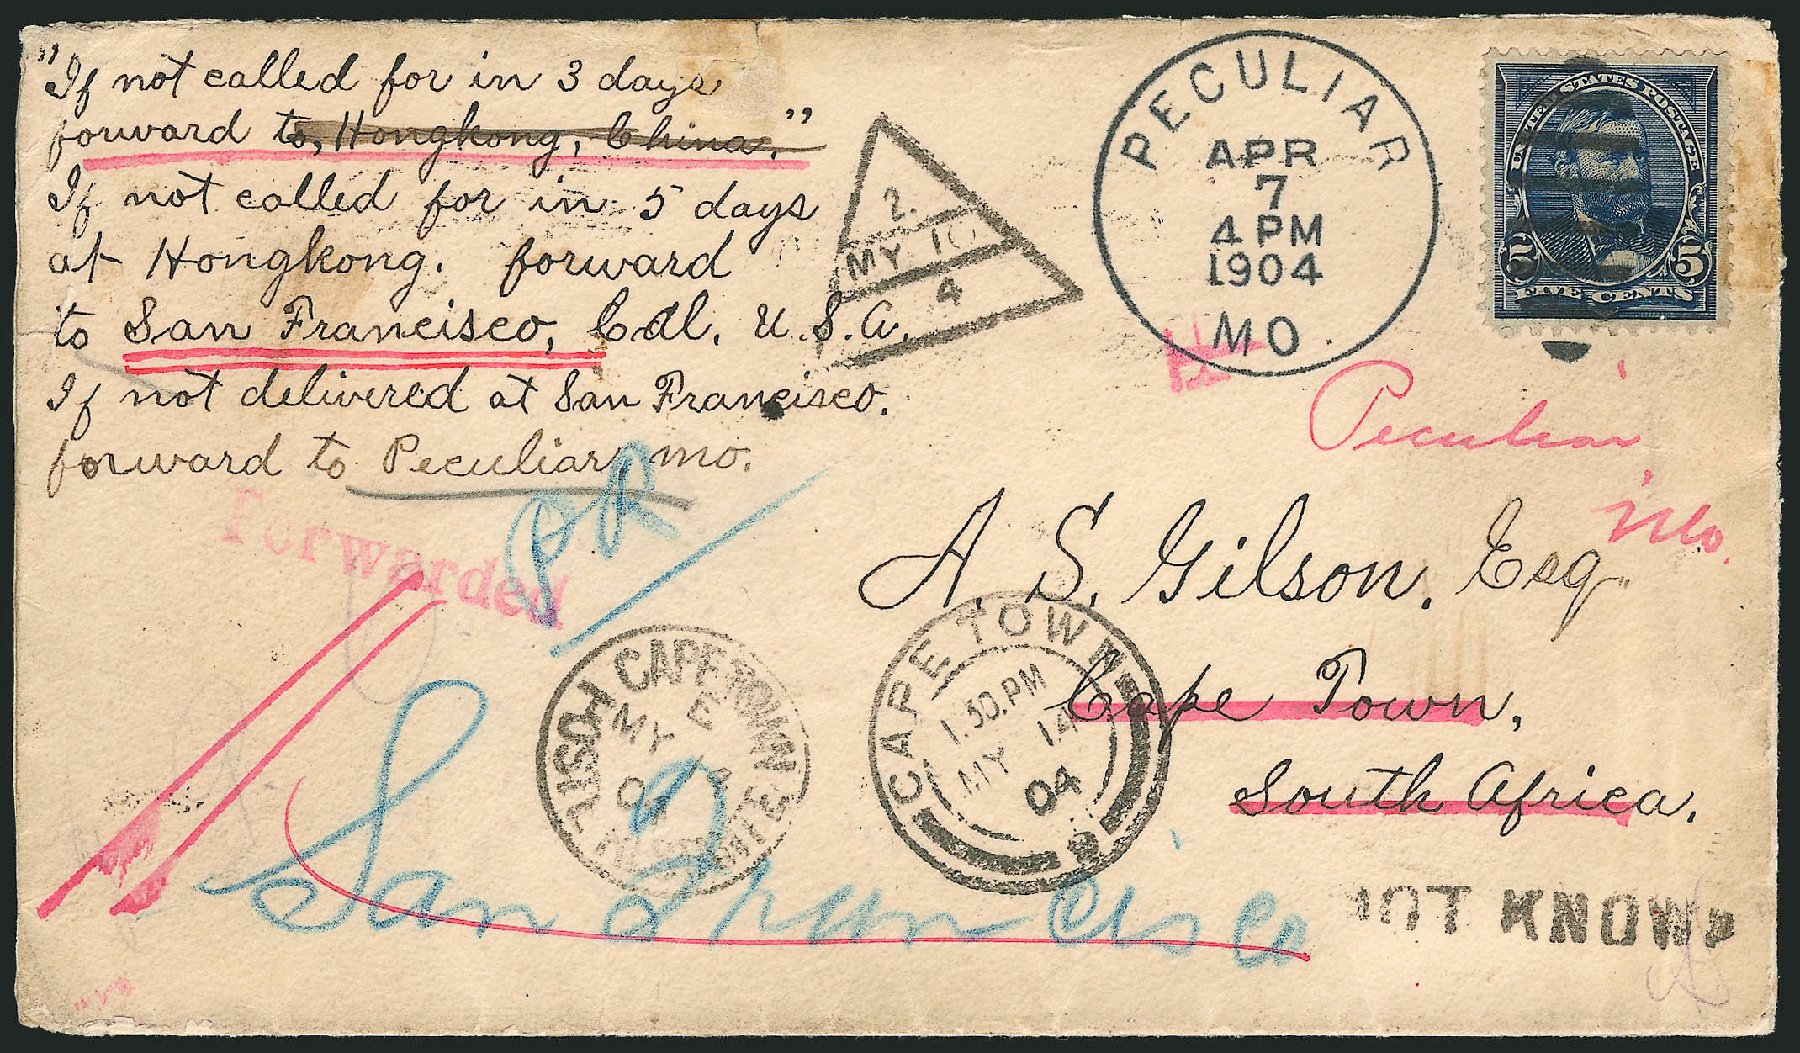 "If not called for in 3 days
forward to, Hongkong, China."
If not called for in 5 days
at Hongkong. forward
to San Francisco, Cal. U.S.A.
If not delivered at San Francisco.
forward to Peculiar, Mo.
2.
MY. 10
4
PECULIAR
APR
7
4 PM
1904
MO.
UNITED STATES POSTAGE
5 5
FIVE CENTS
Peculiar
Mo.
Forwarded
A. S. Gilson. Esq.
Cape Town,
South Africa.
CAPE TOWN
MY
04
CAPE TOWN
1.30.PM
MY 14
04
San Francisco
NOT KNOWN